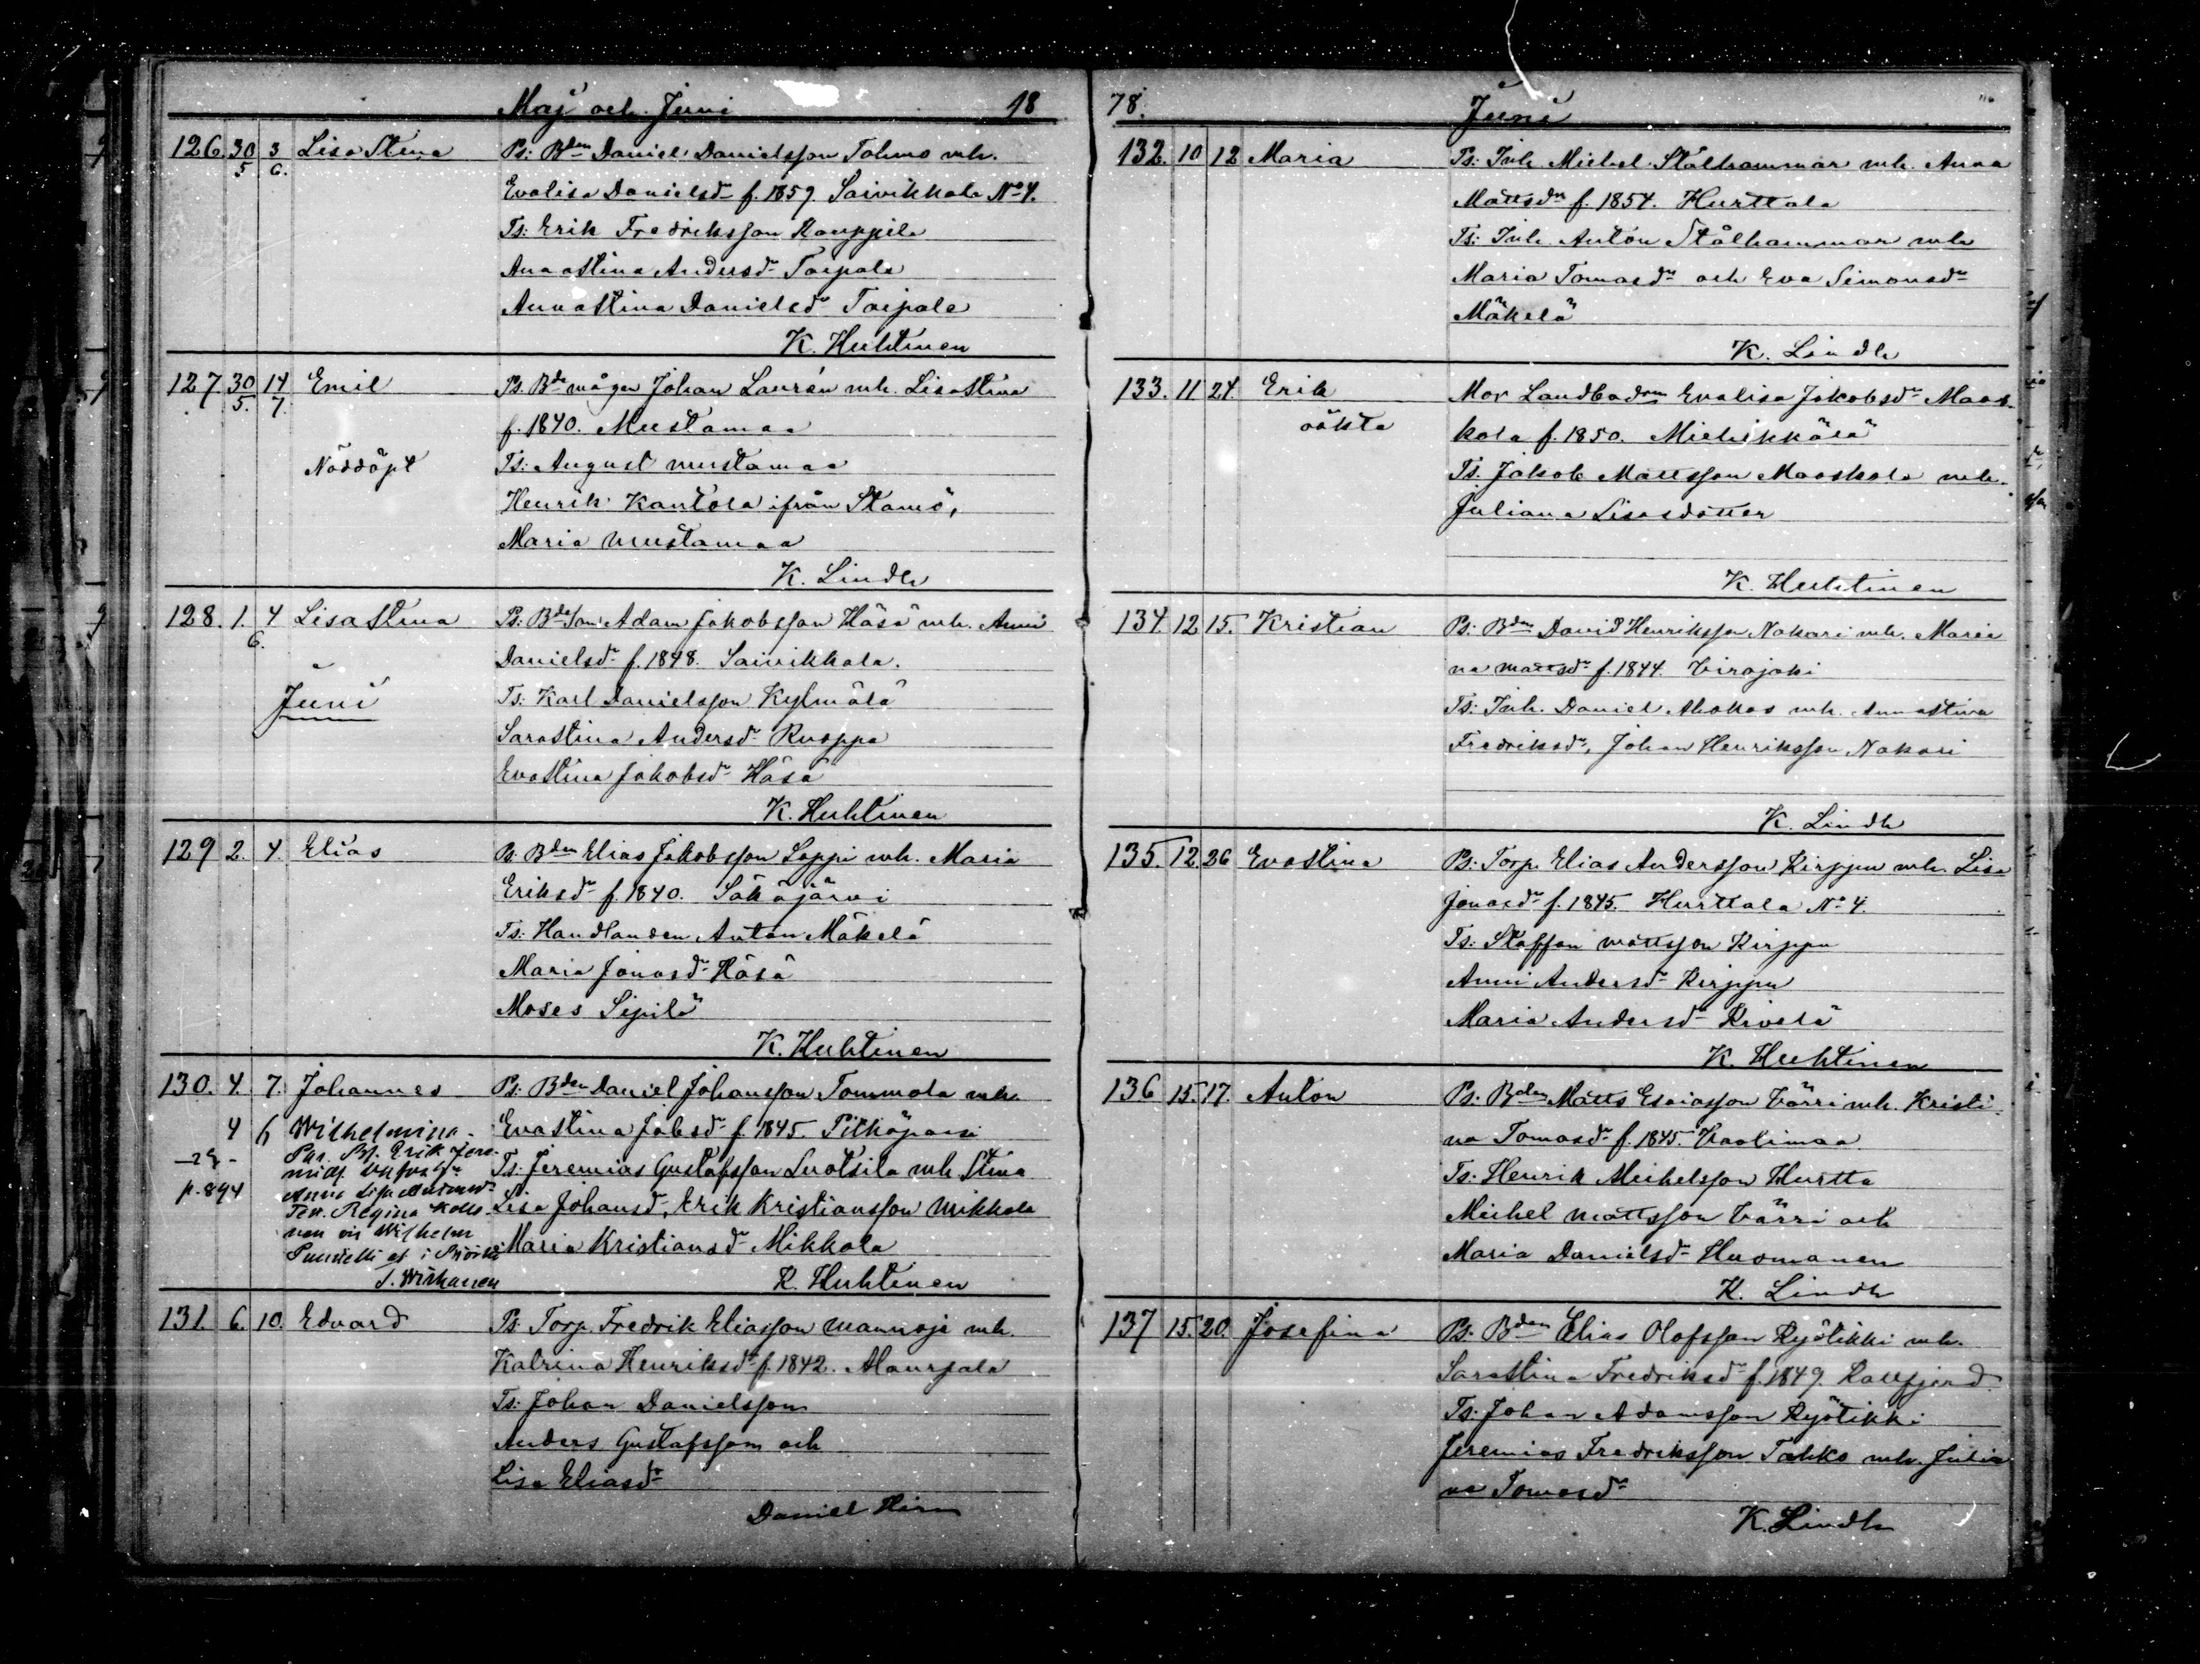 Maj och Juni 18
126. 30/5 3/6. Lisa Stina Ps: Bden Daniel Danielsson Tahmo mh.
Evalisa Danielsdr f. 1859. Saivikkala No 4.
Ts: Erik Fredriksson Kauppila
Annastina Andersdr Taipale
Annastina Danielsdr Taipale
K. Huhtinen
127. 30/5. 14/7. Emil Ps. Bdemågen Johan Laurén mh. Lisastina
f. 1840. Mustamaa
Nöddöpt Ts: August Mustamaa
Henrik Kantola ifrån Stamö,
Maria Mustamaa
K. Lindh
128. 1. 4/6. Lisastina Ps: Bdeson Adam Jakobsson Häsä mh. Anni
Danielsdr f. 1848. Saivikkala.
Juni Ts: Karl Danielsson Kylmälä
Sarastina Andersdr Ruoppa
Evastina Jakobsdr Häsä
K. Huhtinen
129 2. 4. Elias Ps. Bden Elias Jakobsson Soppi mh. Maria
Eriksdr f. 1840. Säkäjärvi
Ts: Handlanden Anton Mäkelä
Maria Jonasdr Häsä
Moses Sipilä
K. Huhtinen
130. 4. 7. Johannes Ps: Bden Daniel Johansson Tommola mh.
4 6 Wilhelmina Evastina Jobsdr f. 1845. Pitkäpaasi
Erik Jere-
Ts: Jeremias Gustafsson Suotsila mh Stina
p. 894 Anna Lisa
Lisa Johansdr, Erik Kristiansson Mikkola
Tess. Regina
Wilhelm
Maria Kristiansdr Mikkola
K. Huhtinen
131. 6. 10. Edvard Ps: Torp. Fredrik Eliasson Mannoja mh.
Katrina Henriksdr f. 1842. Alaurpala
Ts: Johan Danielsson
Anders Gustafsson och
Lisa Eliasdr
Daniel Hirn
78. Juni
132. 10 12 Maria Ps: Inh. Michel Stålhammar mh. Anna
Mattsdr f. 1854. Hurttala
Ts: Inh. Anton Stålhammar mh
Maria Tomasdr och Eva Simonsdr
Mäkelä
K. Lindh
133. 11 24. Erik Mor Landbodrn Evalisa Jakobsdr Maas-
oäkta kola f. 1850. Miehikkälä
Ts. Jakob Mattsson Maaskola mh.
Juliana Lisasdotter
K. Huhtinen
134. 12 15. Kristian Ps: Bden David Henriksson Nakari mh. Maria
na Mattsdr f. 1844. Virojoki
Ts: Inh. Daniel Ahokas mh. Annastina
Fredriksdr, Johan Henriksson Nakari
K. Lindh
135. 12. 26 Evastina Ps: Torp. Elias Andersson Kirppu mh. Lisa
Jonasdr f. 1845. Hurttala No 4.
Ts: Staffan Mattsson Kirppu
Anni Andersdr Kirppu
Maria Andersdr Kivelä
K. Huhtinen
136 15. 17. Anton Ps: Bden Matts Esaiasson Värri mh. Kristi-
na Tomasdr f. 1845. Vaalimaa
Ts: Henrik Michelsson Hurtta
Michel Mattsson Värri och
Maria Danielsdr Husmanen
K. Lindh
137 15. 20. Josefina Ps: Bden Elias Olofsson Ryötikki mh.
Sarastina Fredriksdr f. 1849. Ravfjerd.
Ts: Johan Adamsson Ryötikki
Jeremias Fredriksson Tahko mh. Julia
na Tomasdr
K. Lindh